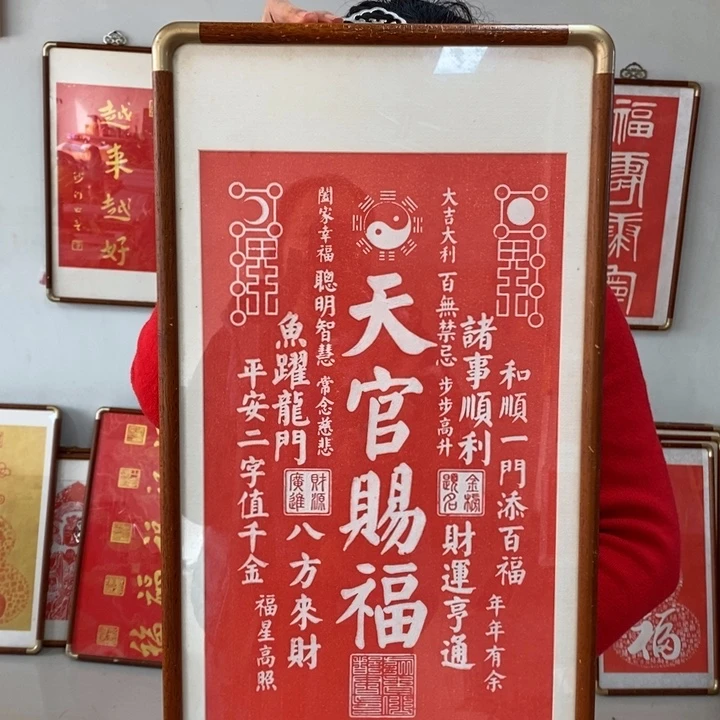 天官賜福
大吉大利 百無禁忌 步步高升
諸事順利
金榜題名
財運亨通
和順一門添百福
年年有余
闔家幸福 聰明智慧 常念慈悲
魚躍龍門
財源廣進
八方來財
平安二字值千金
福星高照
越來越好
福
福